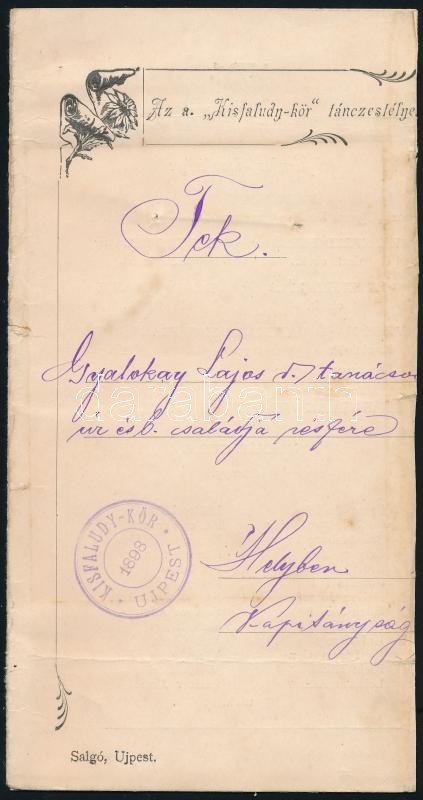 Az a. „Kisfaludy-kör“ tánczestélye
Tek.
Gyalokay Lajos tanácso
úr és b. családja részére
KISFALUDY-KÖR
1898
UJPEST
Helyben
Kapitányság
Salgó, Ujpest.